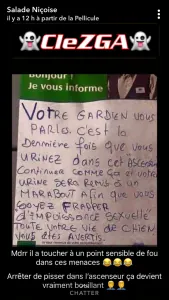 Salade Niçoise
il y a 12 h à partir de la Pellicule
CleZGA
Bonjour !
Je vous informe
VOTRE GARDIEN VOUS
PARLE, C'est la
DERNIÈRE fois que vous
URINEZ dans cet ASCENSEUR
Continuer COMME ça et votre
URINE SERA Remis à un
MARABOUT Afin que vous
SOYEZ FRAPPER
d'IMPUISSANCE SEXUELLE
TOUTE VOTRE VIE DE CHIEN
VOUS ÊTES AVERTIS.
Mdrr il a toucher à un point sensible de fou
dans ces menaces 😂😂😂
Arrêter de pisser dans l'ascenseur ça devient
vraiment bouillant
CHATTER